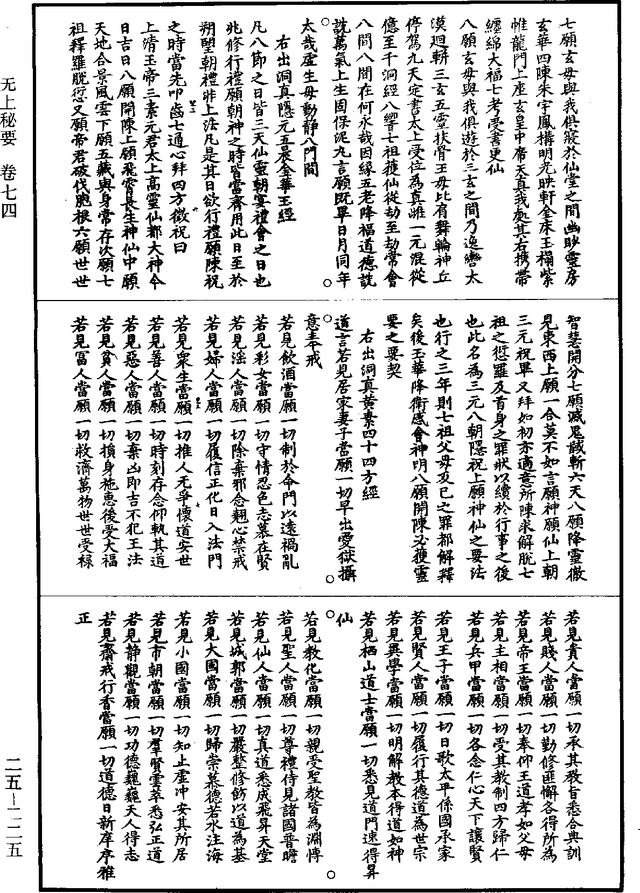 七願玄母與我俱寢於仙堂之間幽眇靈房
玄華四陳朱宇鳳構明光映軒金床玉榻紫
帷龍門上座玄皇中席天真我處其右携帶
纏綿大福七考受書更仙
八願玄母與我俱遊於三玄之間乃逸轡太
漠迴軿三玄五靈扶骨王母比肩舞輪神丘
停駕九天定書太上受位為真雌一元混從
億至千洞經八響七祖獲仙從劫至劫常會
八間八間在何永哉因緣五老降福道德説
説萬氣上生固保泥丸言願既畢日月同年
太哉虛生母動靜八門間
右出洞真隱元五晨金華玉經
凡八節之日皆三天仙靈朝宴禮會之日也
兆修行禮願朝神之時皆當齋用此日至於
朔望朝禮非上法凡是其日欲行禮願陳祝
之時當先叩齒七通心拜四方微祝曰
上清玉帝三素元君太上高靈仙都大神今
日吉日八願開陳上願飛霄長生神仙中願
天地合景風雲下願五藏與身常存次願七
祖釋羅脱愆又願帝君破伐胞根六願世世
智慧開分七願滅鬼馘斬六天八願降靈徹
見東西上願一合莫不如言神願仙上朝
三元祝畢又拜如初亦適意所陳求解脱七
祖之愆羅及首身之罪狀以續於行事之後
也此名為三元八朝隱祝上願神仙之要法
也行之三年則七祖父母及已之罪都解釋
矣後玉華降衛感會神明八願開陳必獲靈
要之要契
右出洞真黄素四十四方經
道言若見居家妻子當願一切早出愛獄攝
意奉戒
若見飲酒當願一切制於命門以遠禍亂
若見彩女當願一切守情忍色志慕在賢
若見淫人當願一切除棄邪念翹心禁戒
若見婦人當願一切履信正化日入法門
若見衆生當願一切推人无爭懷道安世
若見善人當願一切時刻存念仰執其道
若見惡人當願一切棄凶即吉不犯王法
若見貧人當願一切損身施惠後受大福
若見富人當願一切救濟萬物世世受禄
若見貴人當願一切承其教旨悉合典訓
若見賤人當願一切勤修匪懈各得所為
若見帝王當願一切奉仰王道孝如父母
若見主相當願一切受其教制四方歸仁
若見兵甲當願一切各念仁心天下讓賢
若見王子當願一切日歌太平係國承家
若見賢人當願一切履行其德道為世宗
若見異學當願一切明解教本得道如神
若見栖山道士當願一切悉見道門速得昇
仙
若見教化當願一切親受聖教皆為淵博
若見聖人當願一切尊禮侍見諸國普瞻
若見仙人當願一切真道悉成飛昇天堂
若見城郭當願一切嚴整修飭以道為基
若見大國當願一切歸崇慕德若水注海
若見小國當願一切知止虛冲安其所居
若見市朝當願一切羣賢雲萃悉弘正道
若見靜觀當願一切功德巍巍天人得志
若見齋戒行香當願一切道德日新庠序雅
正
无上秘要 卷七四
二五—二五